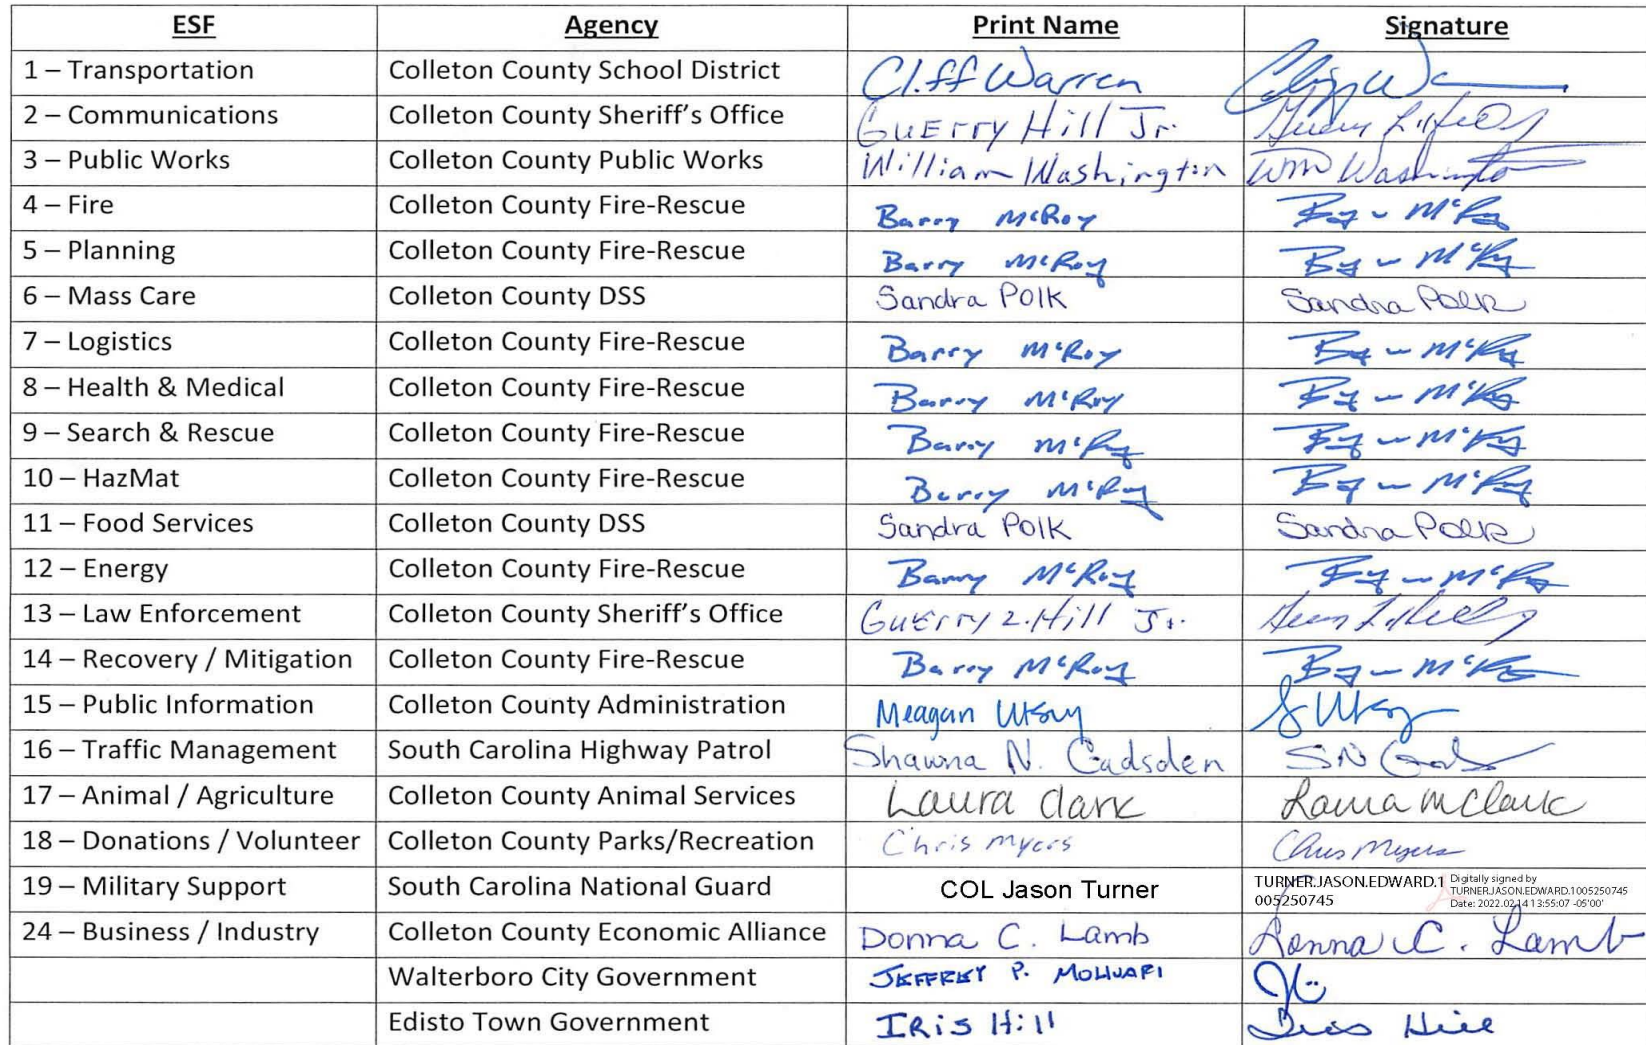 ESF Agency Print Name Signature
1 – Transportation Colleton County School District Cliff Warren
2 – Communications Colleton County Sheriff's Office Guerry Hill Jr.
3 – Public Works Colleton County Public Works William Washington Wm Washington
4 – Fire Colleton County Fire-Rescue Barry McRoy
5 – Planning Colleton County Fire-Rescue Barry McRoy
6 – Mass Care Colleton County DSS Sandra Polk Sandra Polk
7 – Logistics Colleton County Fire-Rescue Barry McRoy
8 – Health & Medical Colleton County Fire-Rescue Barry McRoy
9 – Search & Rescue Colleton County Fire-Rescue Barry McRoy
10 – HazMat Colleton County Fire-Rescue Barry McRoy
11 – Food Services Colleton County DSS Sandra Polk Sandra Polk
12 – Energy Colleton County Fire-Rescue Barry McRoy
13 – Law Enforcement Colleton County Sheriff's Office Guerry L. Hill Jr.
14 – Recovery / Mitigation Colleton County Fire-Rescue Barry McRoy
15 – Public Information Colleton County Administration Meagan Utsey
16 – Traffic Management South Carolina Highway Patrol Shawna N. Gadsden
17 – Animal / Agriculture Colleton County Animal Services Laura Clark Laura M Clark
18 – Donations / Volunteer Colleton County Parks/Recreation Chris Myers Chris Myers
19 – Military Support South Carolina National Guard COL Jason Turner TURNER.JASON.EDWARD.1
005250745
Digitally signed by
TURNER.JASON.EDWARD.1005250745
Date: 2022.02.14 13:55:07 -05'00'
24 – Business / Industry Colleton County Economic Alliance Donna C. Lamb Donna C. Lamb
Walterboro City Government JEFFREY P. MOLINARI
Edisto Town Government IRis Hill Iris Hill